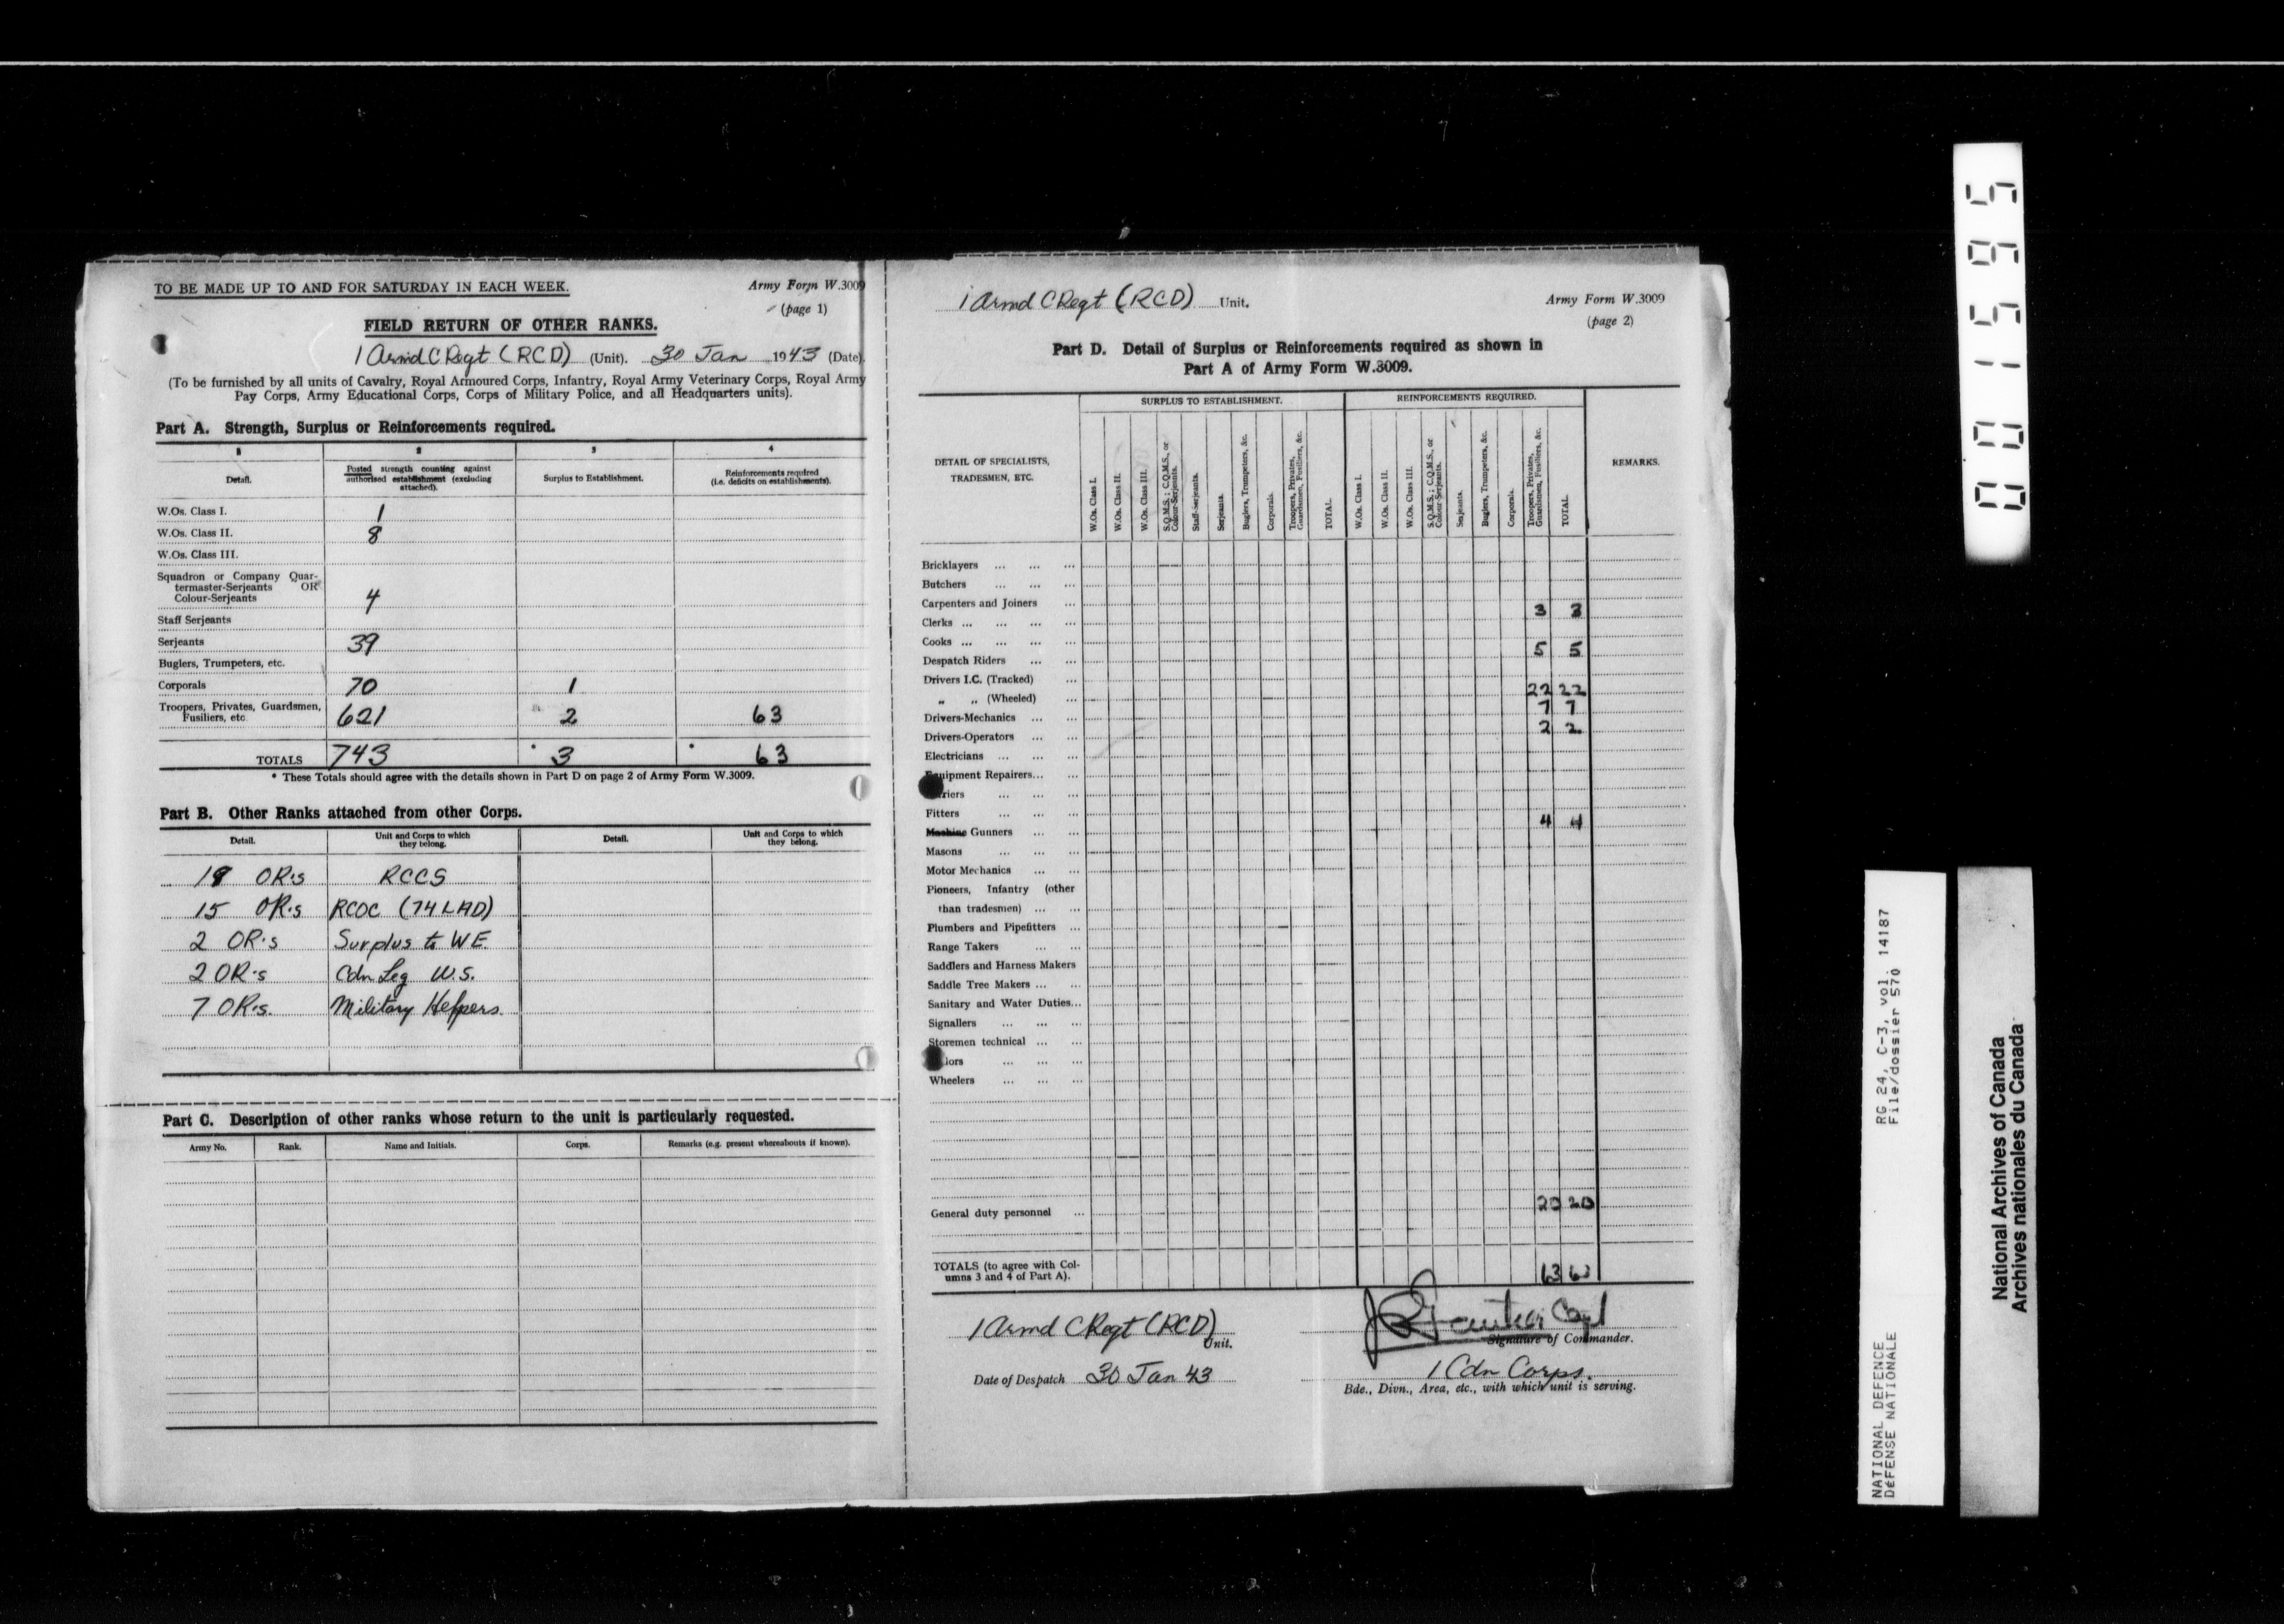 TO BE MADE UP TO AND FOR SATURDAY IN EACH WEEK.
Army Form W.3009
(page 1)
FIELD RETURN OF OTHER RANKS.
1 Armd C Regt (RCD) (Unit). 30 Jan 1943 (Date).
(To be furnished by all units of Cavalry, Royal Armoured Corps, Infantry, Royal Army Veterinary Corps, Royal Army
Pay Corps, Army Educational Corps, Corps of Military Police, and all Headquarters units).
Part A. Strength, Surplus or Reinforcements required.
1 2 3 4
Detail.
Posted strength counting against
authorised establishment (excluding
attached).
Surplus to Establishment.
Reinforcements required
(i.e. deficits on establishments).
W.Os. Class I. 1
W.Os. Class II. 8
W.Os. Class III.
Squadron or Company Quar-
termaster-Serjeants OR
Colour-Serjeants 4
Staff Serjeants
Serjeants 39
Buglers, Trumpeters, etc.
Corporals 70 1
Troopers, Privates, Guardsmen,
Fusiliers, etc 621 2 63
TOTALS 743 * 3 * 63
* These Totals should agree with the details shown in Part D on page 2 of Army Form W.3009.
Part B. Other Ranks attached from other Corps.
Detail.
Unit and Corps to which
they belong.
Detail.
Unit and Corps to which
they belong.
OR's RCCS
15 OR's RCOC (74 LAD)
2 OR's Surplus to WE
2 OR's Cdn Leg W.S.
7 OR's. Military Helpers.
Part C. Description of other ranks whose return to the unit is particularly requested.
Army No. Rank. Name and Initials. Corps. Remarks (e.g. present whereabouts if known).
1 Armd C Regt (RCD) Unit.
Army Form W.3009
(page 2)
Part D. Detail of Surplus or Reinforcements required as shown in
Part A of Army Form W.3009.
DETAIL OF SPECIALISTS,
TRADESMEN, ETC.
SURPLUS TO ESTABLISHMENT.
W.Os. Class I.
W.Os. Class II.
W.Os. Class III.
S.Q.M.S.; C.Q.M.S., or
Colour-Serjeants.
Staff-Serjeants.
Serjeants.
Buglers, Trumpeters, &c.
Corporals.
Troopers, Privates,
Guardsmen, Fusiliers, &c.
TOTAL.
REINFORCEMENTS REQUIRED.
W.Os. Class I.
W.Os. Class II.
W.Os. Class III.
S.Q.M.S.; C.Q.M.S., or
Colour-Serjeants.
Serjeants.
Buglers, Trumpeters, &c.
Corporals.
Troopers, Privates,
Guardsmen, Fusiliers, &c.
TOTAL.
REMARKS.
Bricklayers ... ... ...
Butchers ... ... ...
Carpenters and Joiners ...
Clerks ... ... ... ... 3 3
Cooks ... ... ... ...
Despatch Riders ... ... 5 5
Drivers I.C. (Tracked) ...
„ „ (Wheeled) ... 22 22
Drivers-Mechanics ... ... 7 7
Drivers-Operators ... ... 2 2
Electricians ... ... ...
Equipment Repairers... ...
riers ... ... ...
Fitters ... ... ...
Machine Gunners ... ... 4 4
Masons ... ... ...
Motor Mechanics ... ...
Pioneers, Infantry (other
than tradesmen) ... ...
Plumbers and Pipefitters ...
Range Takers ... ...
Saddlers and Harness Makers
Saddle Tree Makers ... ...
Sanitary and Water Duties...
Signallers ... ... ...
Storemen technical ... ...
lors ... ... ...
Wheelers ... ... ...
General duty personnel ... 20 20
TOTALS (to agree with Col-
umns 3 and 4 of Part A). 63 63
1 Armd C Regt (RCD)
Unit.
Capt
Signature of Commander.
Date of Despatch 30 Jan 43
1 Cdn Corps.
Bde., Divn., Area, etc., with which unit is serving.
001595
RG 24, C-3, vol. 14187
File/dossier 570
NATIONAL DEFENCE
DÉFENSE NATIONALE
National Archives of Canada
Archives nationales du Canada